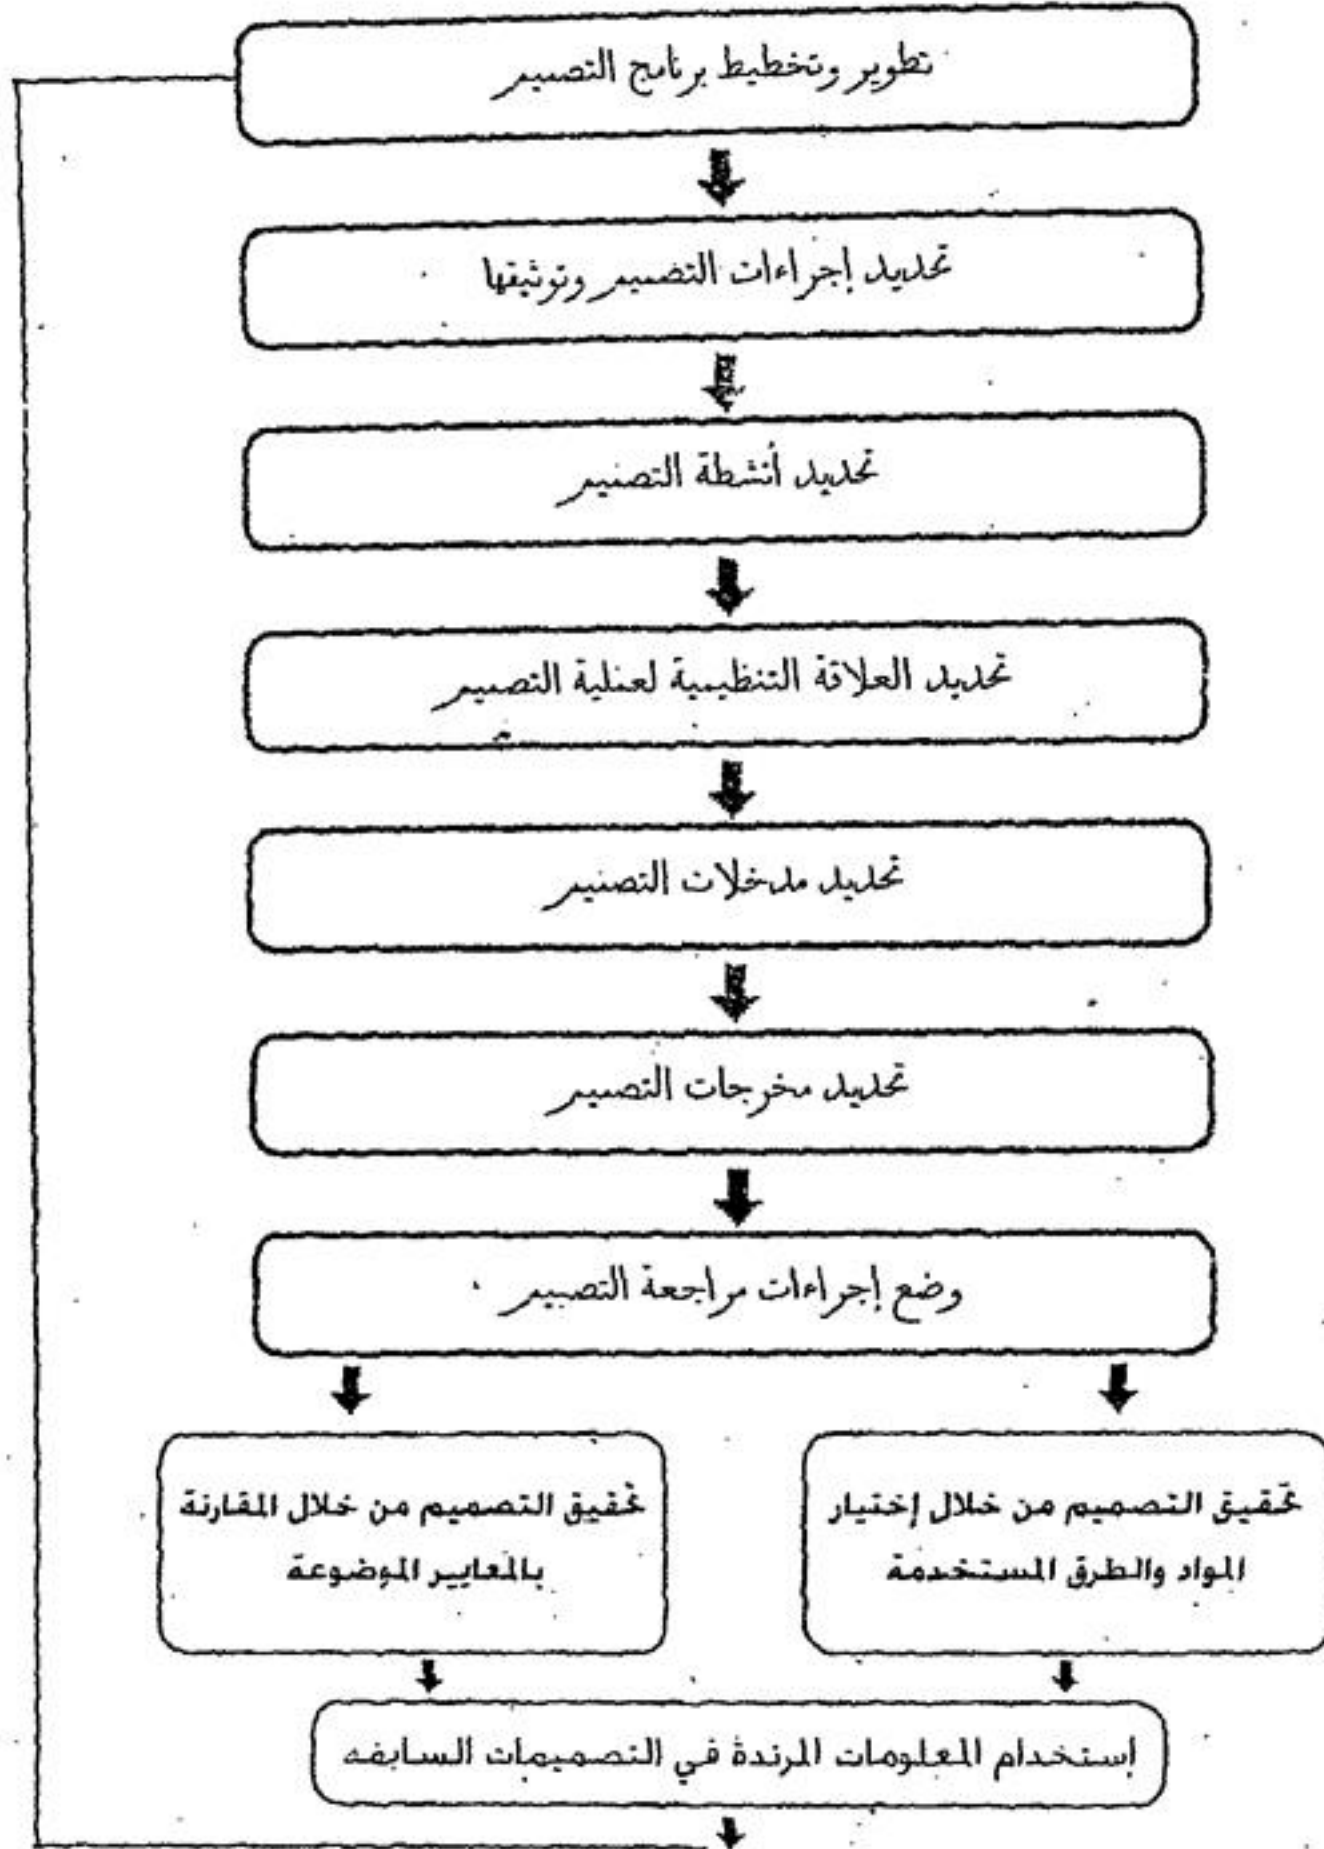 تطوير وتخطيط برنامج التصميم
تحديد إجراءات التصميم وتوثيقها
تحديد أنشطة التصميم
تحديد العلاقة التنظيمية لعملية التصميم
تحديد مدخلات التصميم
تحديد مخرجات التصميم
وضع إجراءات مراجعة التصميم
تحقيق التصميم من خلال إختيار
المواد والطرق المستخدمة
تحقيق التصميم من خلال المقارنة
بالمعايير الموضوعة
إستخدام المعلومات المرتدة في التصميمات السابقه